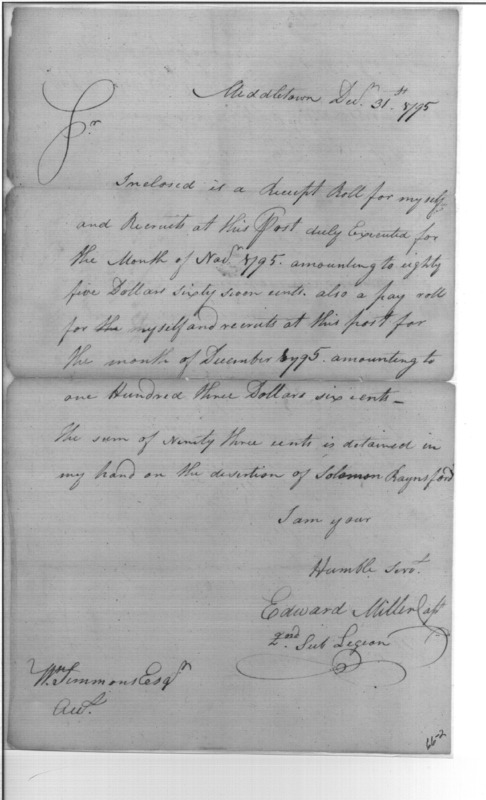 Middletown Decr. 31st. 1795
Sr.
Inclosed is a Receipt Roll for myself
and Recruits at this Post duly Executed for
the Month of Novr. 1795. amounting to eighty
five Dollars sixty seven cents. also a pay roll
for the myself and recruits at this post for
the month of December 1795. amounting to
one Hundred three Dollars six cents—
the sum of Ninity three cents is detained in
my hand on the desertion of Solomon Raynsford
I am your
Humble Servt.
Edward Miller Capt
2nd. Sub Legion
Wm. Simmons Esqr
Acct.
66-2